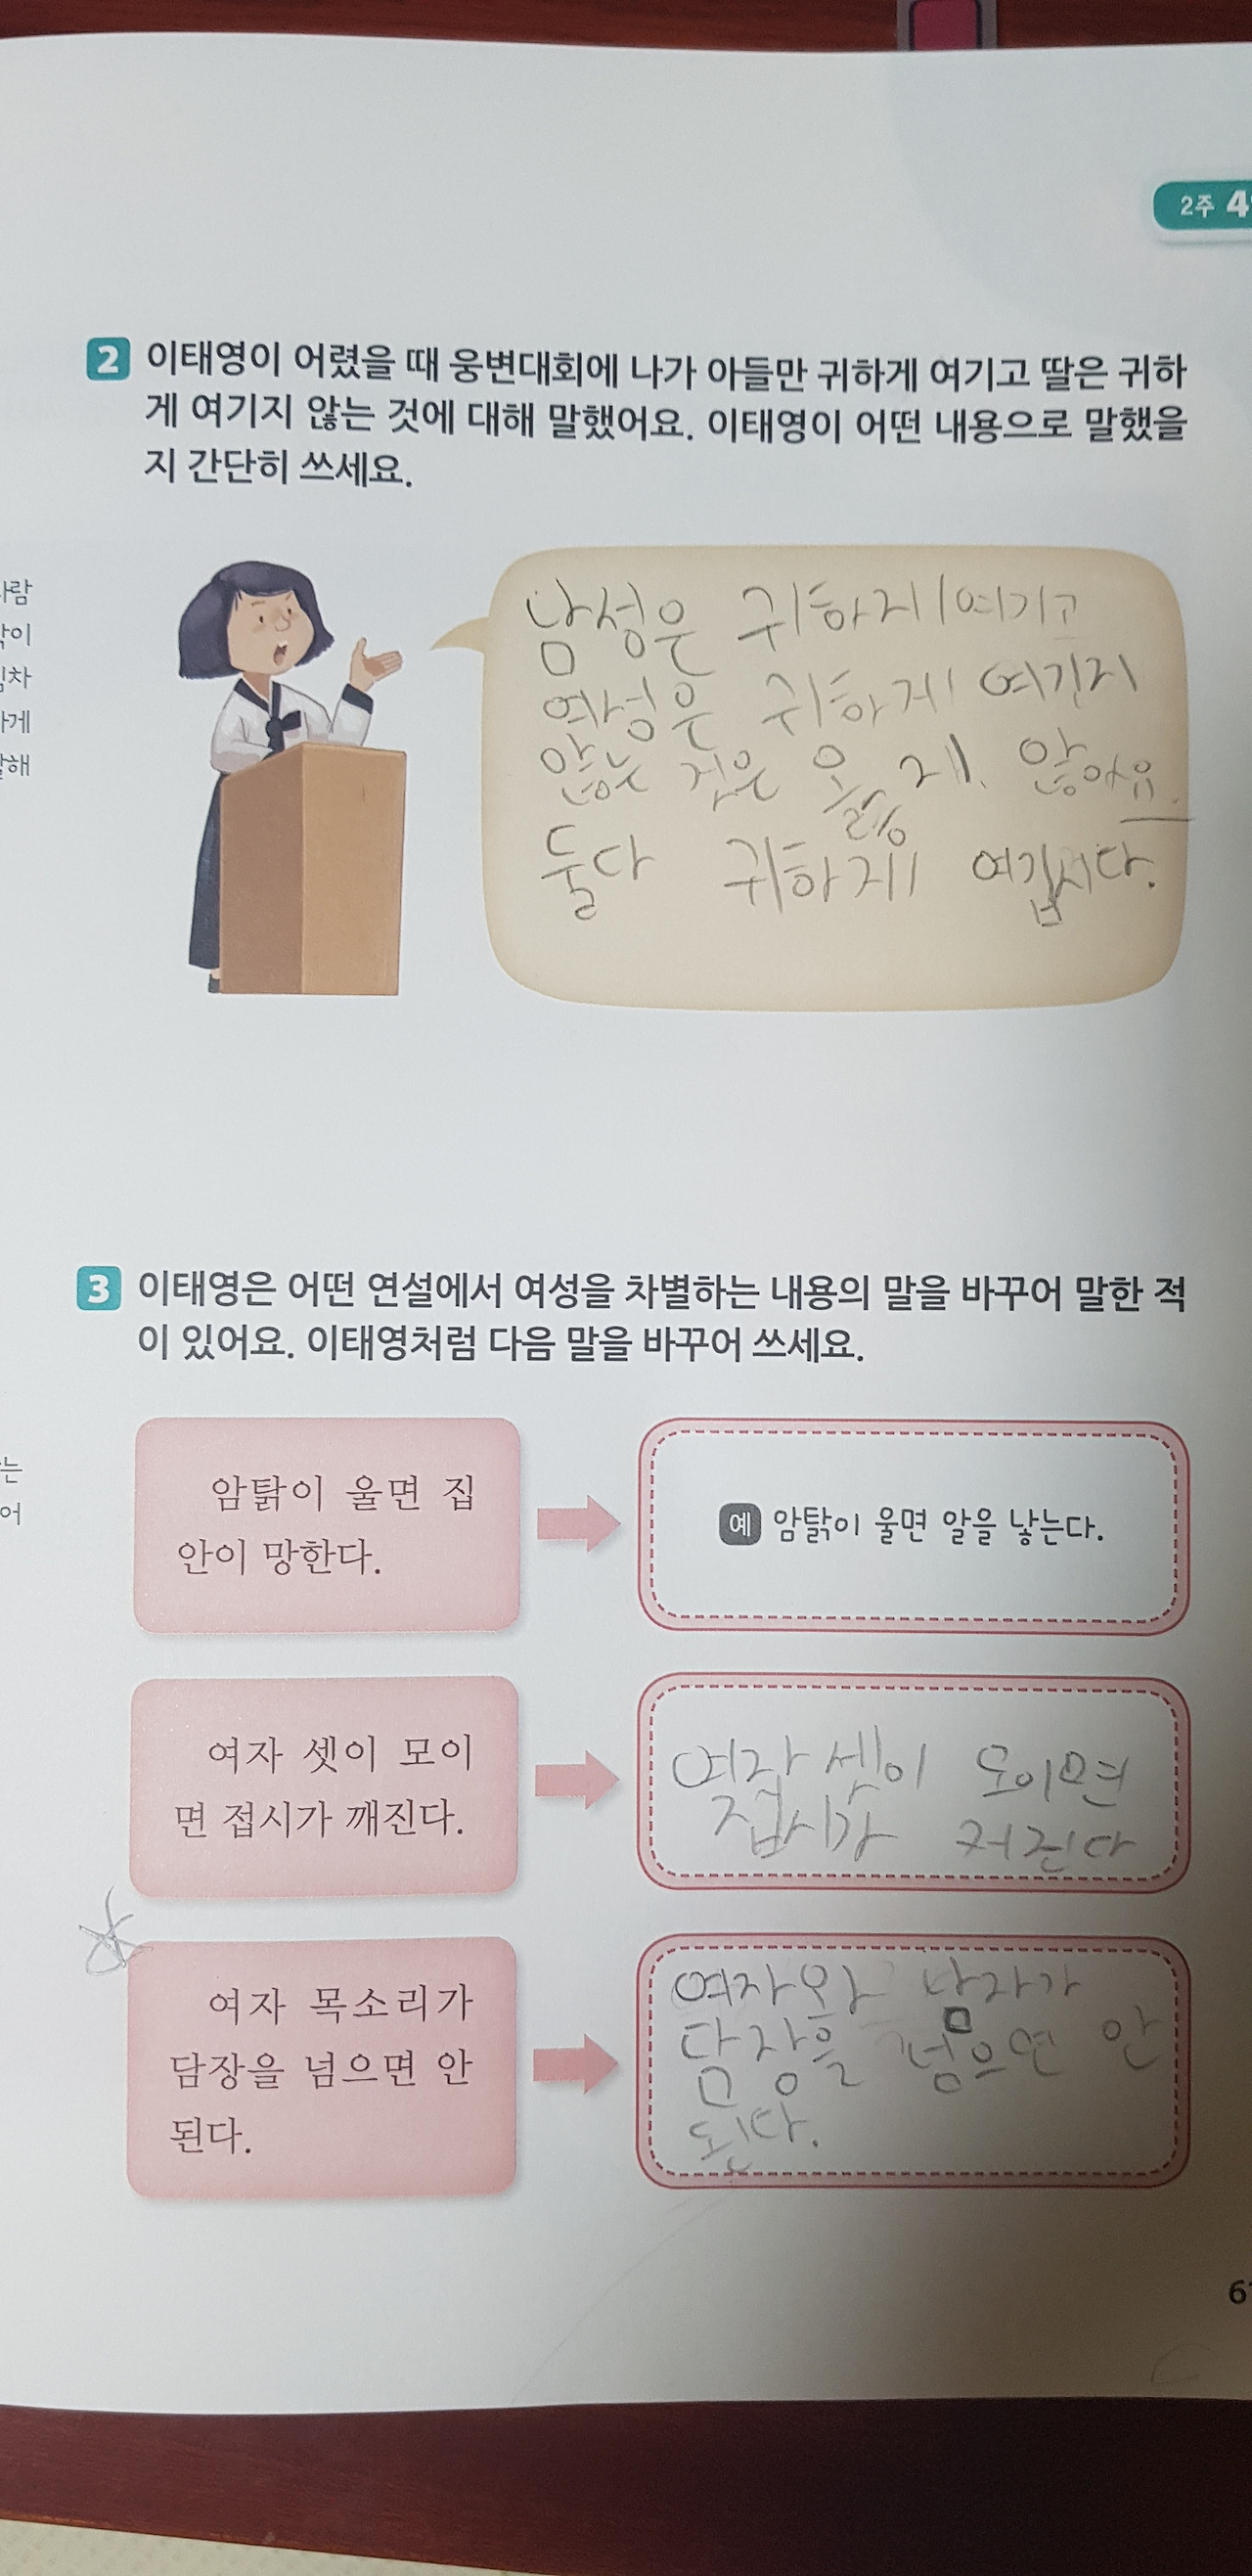 2주 4
2 이태영이 어렸을 때 웅변대회에 나가 아들만 귀하게 여기고 딸은 귀하
게 여기지 않는 것에 대해 말했어요. 이태영이 어떤 내용으로 말했을
지 간단히 쓰세요.
남성은 귀하게 여기고
여성은 귀하게 여기지
않는 것은 옳지 않아요.
둘다 귀하게 여깁시다.
3 이태영은 어떤 연설에서 여성을 차별하는 내용의 말을 바꾸어 말한 적
이 있어요. 이태영처럼 다음 말을 바꾸어 쓰세요.
암탉이 울면 집
안이 망한다.
예 암탉이 울면 알을 낳는다.
여자 셋이 모이
면 접시가 깨진다.
여자 셋이 모이면
접시가 커진다
여자 목소리가
담장을 넘으면 안
된다.
여자와 남자가
담장을 넘으면 안
된다.